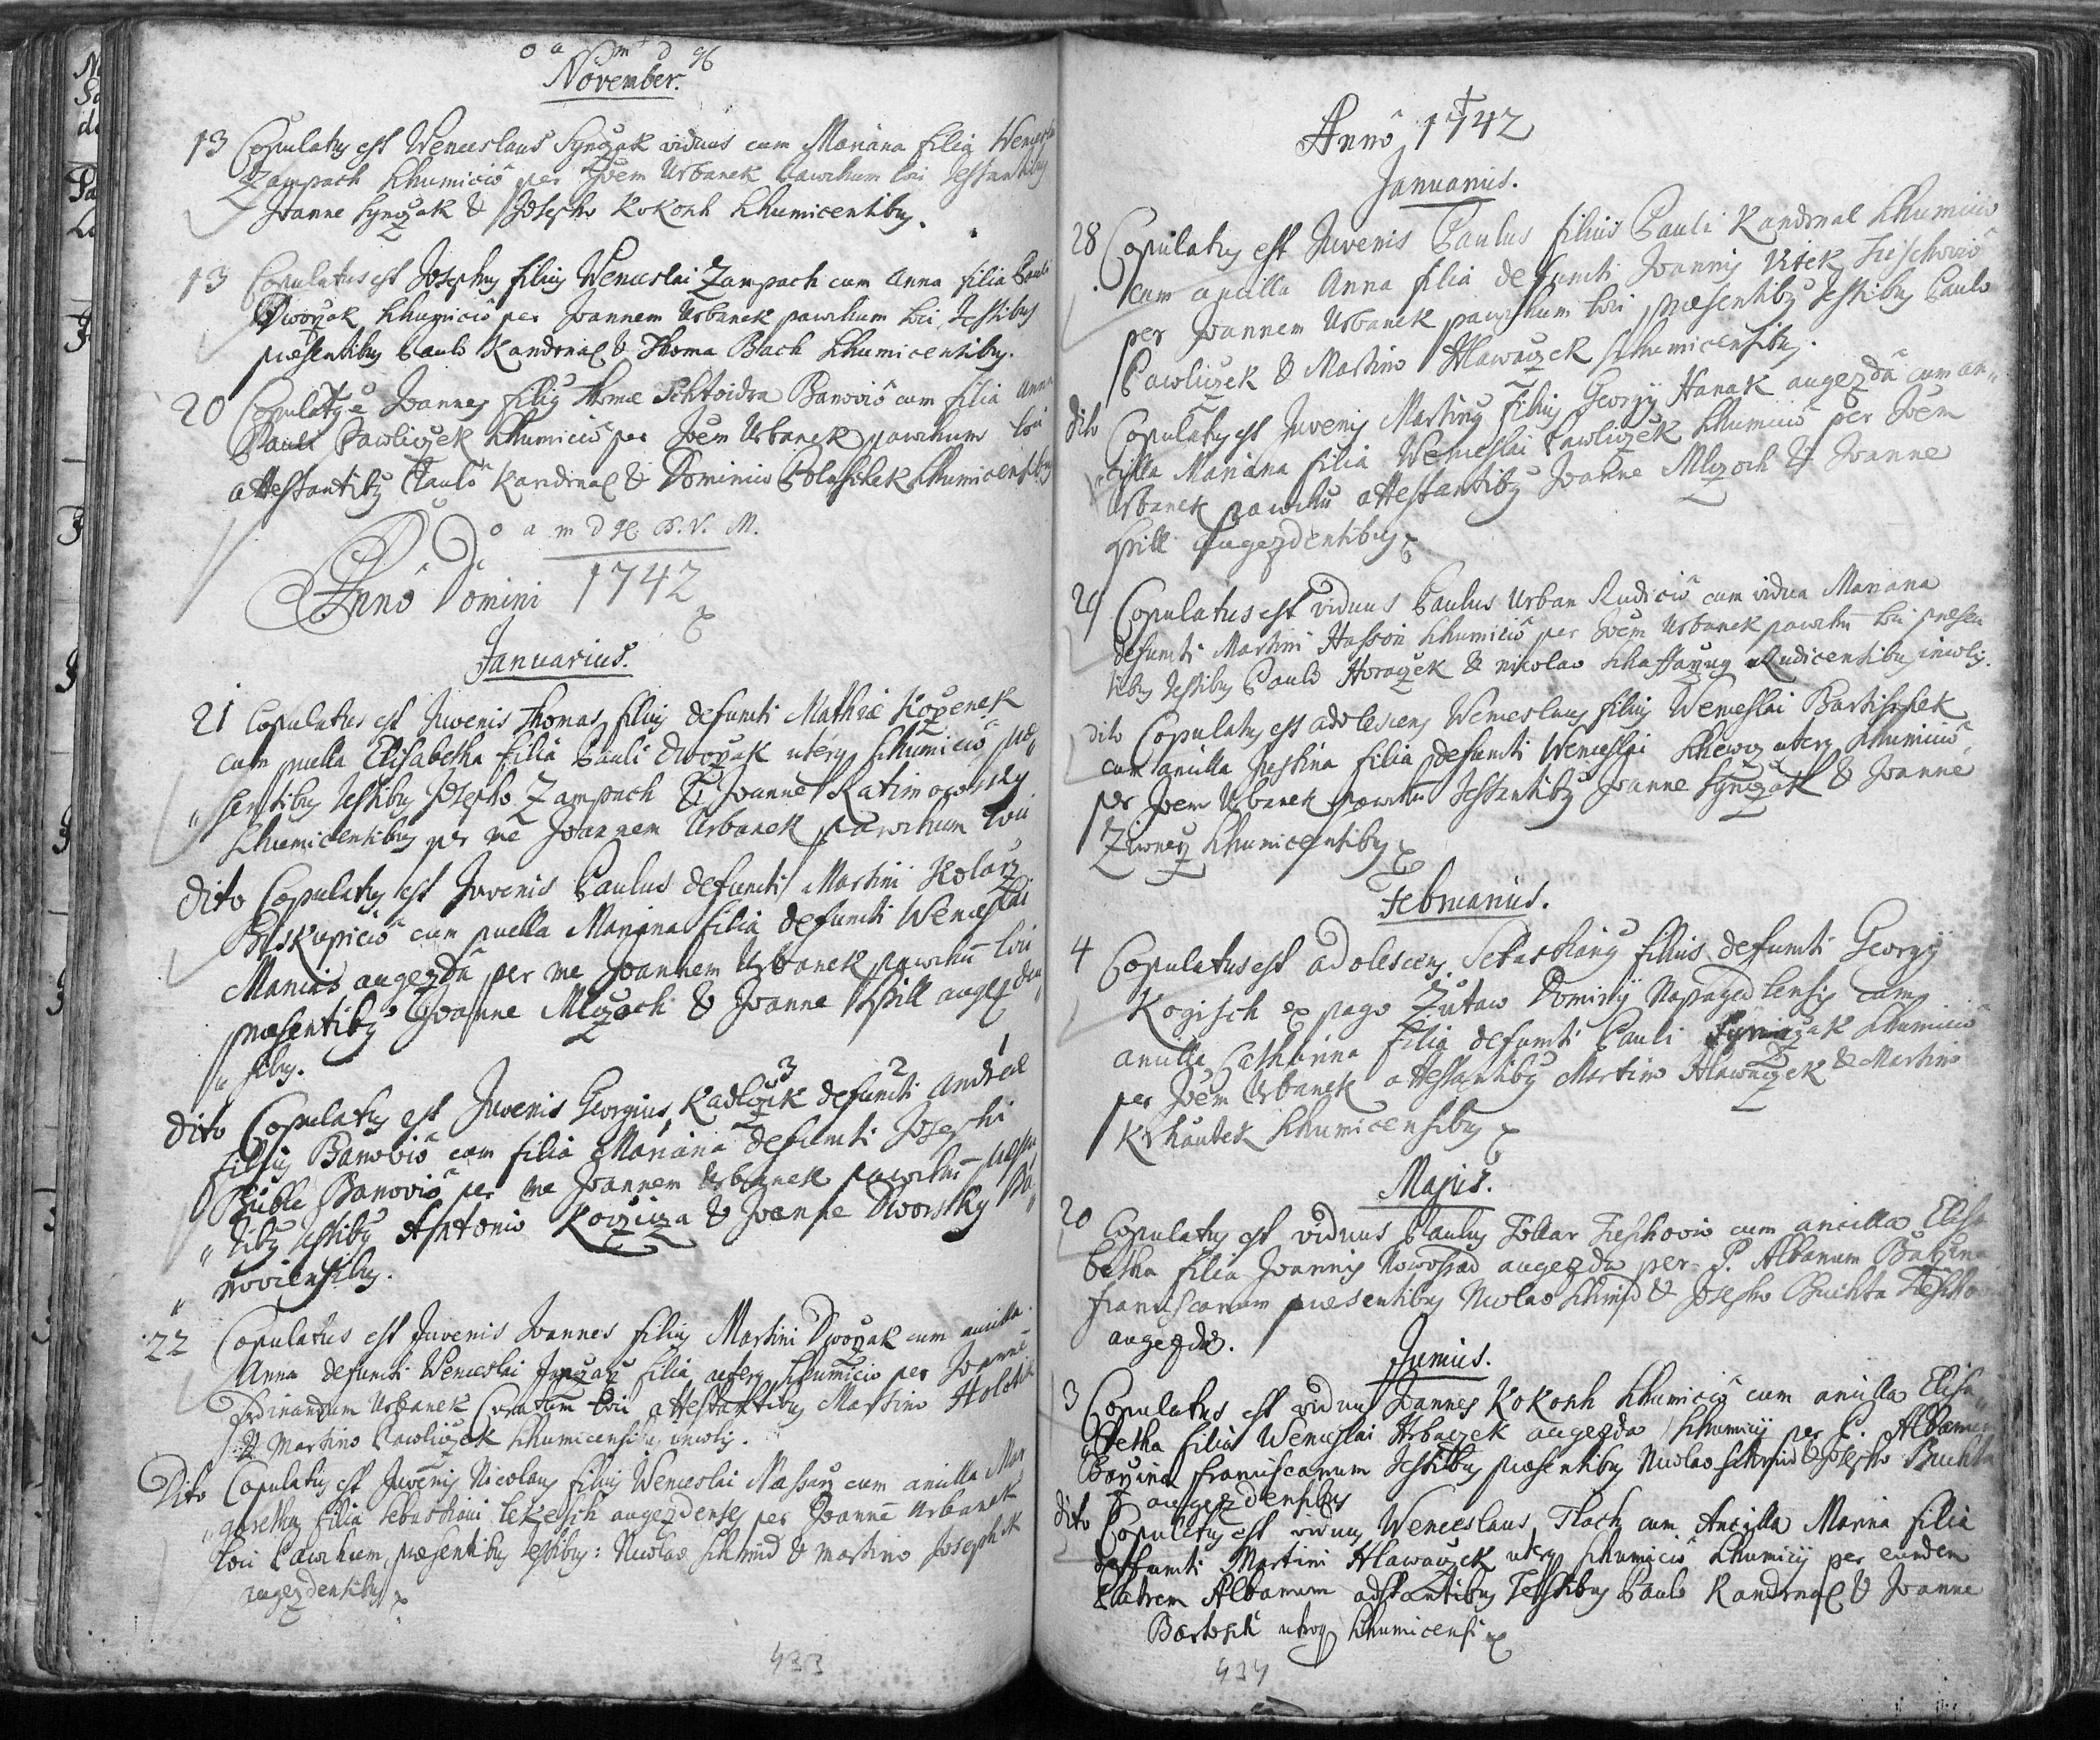 o a m d g
November.
13 Copulatus est Wenceslaus Synczak viduus cum Mariana filia
Zampach Lhumicio per Joem Urbanek parochum loci testantibus
Joanne Synczak & Josepho Kokorsk Lhumicensibus.
13 Copulatus est Josephus filius Wenceslai Zampach cum Anna filia Pauli
Dworzak Lhumicio per Joannem Urbanek parochum loci testibus
præsentibus Paulo Kandrnal & Thoma Bach Lhumicensibus.
20 Copulatus e Joannes filius Thomæ Banovio cum filia Anna
Pauli Pawliczek Lhumicio per Joem Urbanek parochum loci
attestantibus Paulo Kandrnal & Dominico Lhumicensibus
o a m d g B. V. M.
Anno Domini 1742
Januarius.
21 Copulatus est Juvenis Thomas filius defuncti Mathiæ Korzenek
cum puella Elisabetha filia Pauli Dworzak uterq Lhumicio præ„
„sentibus testibus Josepho Zampach & Joanne Ratimowsky
Lhumicensibus per me Joannem Urbanek parochum loci
dito Copulatus est Juvenis Paulus defuncti Martini Kolarz
Biskupicio cum puella Mariana filia defuncti Wenceslai
Manias augezda per me Joannem Urbanek parochu loci
præsentibus Joanne Mlczoch & Joanne Spill augezden„
„sibus.
3 2 1
dito Copulatus est Juvenis Georgius Kadlczik defuncti Andreæ
filius Banovio cum filia Mariana defuncti Josephi
Buble Banovio per me Joannem Urbanek parochum præsen
„tibus testibus Antonio & Joanne Dworsky Ba„
„noviensibus.
22 Copulatus est Juvenis Joannes filius Martini Dworzak cum ancilla
Anna defuncti Wenceslai filia uterq Lhumicio per Joanne
Ferdinandum Urbanek Curatum loci attestantibus Martino
& Martino Pawliczek Lhumicensibus incolis.
Dito Copulatus est Juvenis Nicolaus filius Wenceslai cum ancilla Mar
„garetha filia Sebastiani augezdenses per Joanne Urbanek
loci Parochum, præsentibus testibus: Nicolao Schmid & Martino
augezdensibus
433
Anno 1742
Januarius.
28 Copulatus est Juvenis Paulus filius Pauli Kandrnal Lhumicio
cum ancilla Anna filia defuncti Joannis Vitek
per Joannem Urbanek parochum loci præsentibus testibus Paulo
Pawliczek & Martino Hlawaczek Lhumicensibus.
dito Copulatus est Juvenis Martinus filius Georgÿ Hanak augezda cum an„
„cilla Mariana filia Wenceslai Pawliczek Lhumicio per Joem
Urbanek parochu attestantibus Joanne Mlczoch & Joanne
Spill augezdensibus
29 Copulatus est viduus Paulus Urban Rudicio cum vidua Mariana
defuncti Martini Lhumicio per Joem Urbanek parochu loci præsen
tibus testibus Paulo Horaczek & Nicolao Rudicensibus incolis.
dito Copulatus est adolescens Wenceslaus filius Wenceslai
cum ancilla Justina filia defuncti Wenceslai uterq Lhumicio
per Joem Urbanek parochu testantibus Joanne Synczak & Joanne
Lhumicensibus
Februarius.
4 Copulatus est adolescens Sebastianus filius defuncti Georgÿ
Kogisch ex pago Zutaw Dominÿ Napagedlensis cum
ancilla Catharina filia defuncti Pauli Lhumicio
per Joem Urbanek attestantibus Martino Hlawaczek & Martino
Lhumicensibus
Majus.
20 Copulatus est viduus Paulus cum ancilla Elisa
betha filia Joannis augezda per P. Albanum
franciscanum præsentibus Nicolao Schmid & Josepho Buchta
augezda.
Junius.
3 Copulatus est viduus Joannes Kokorsk Lhumicio cum ancilla Elisa„
„betha filia Wenceslai Hrbaczek augezda Lhumicÿ per P. Albanum
franciscanum testibus præsentibus Nicolao Schmid & Josepho Buchta
augezdensibus
dito Copulatus est viduus Wenceslaus Tkach cum Ancilla Marina filia
deffuncti Martini Hlawaczek uterq Lhumicio Lhumicÿ per eundem
Patrem Albanum adstantibus Testibus Paulo Kandrnal & Joanne
Bartosik utroq Lhumicensi
434